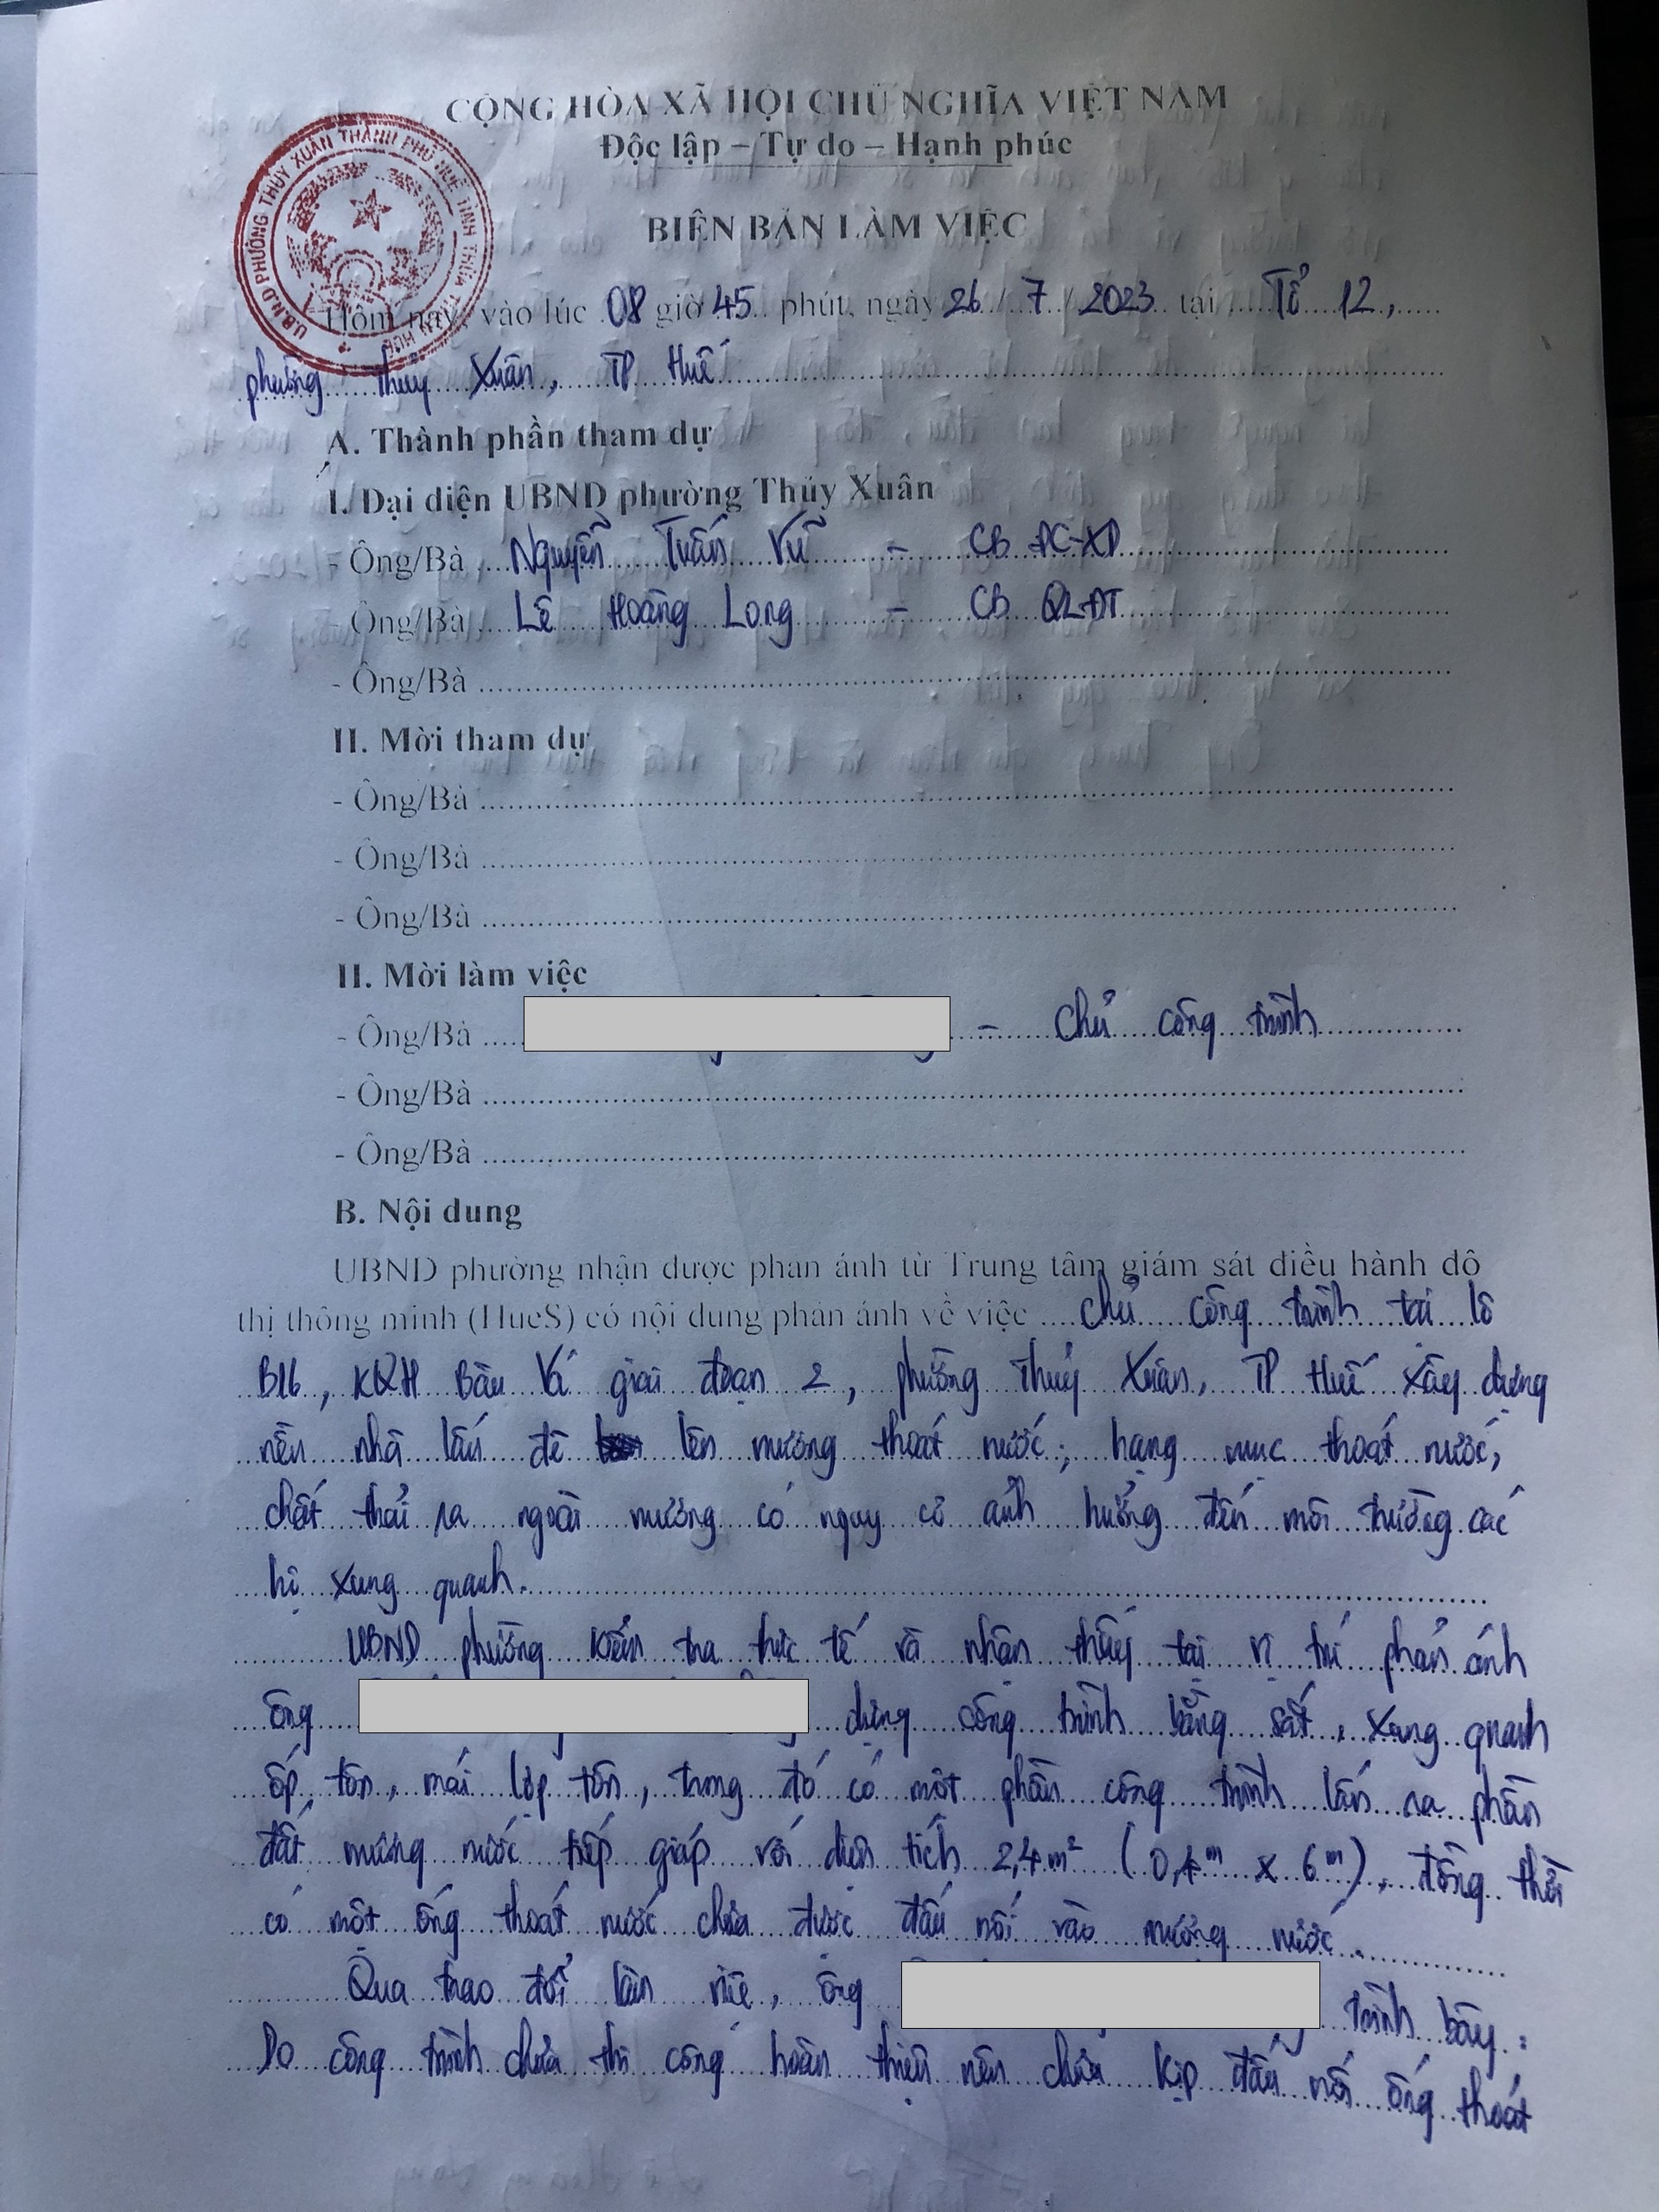 CỘNG HÒA XÃ HỘI CHỦ NGHĨA VIỆT NAM
Độc lập – Tự do – Hạnh phúc
U.B.N.D PHƯỜNG THỦY XUÂN THÀNH PHỐ HUẾ TỈNH THỪA THIÊN HUẾ
BIÊN BẢN LÀM VIỆC
Hôm nay, vào lúc 08 giờ 45 phút, ngày 26 / 7 / 2023 tại Tổ 12,
phường Thủy Xuân, TP Huế
A. Thành phần tham dự
I. Đại diện UBND phường Thủy Xuân
- Ông/Bà Nguyễn Tuấn Vũ – CB ĐC-XD
- Ông/Bà Lê Hoàng Long – CB QLĐT
- Ông/Bà
II. Mời tham dự
- Ông/Bà
- Ông/Bà
- Ông/Bà
II. Mời làm việc
- Ông/Bà – Chủ công trình
- Ông/Bà
- Ông/Bà
B. Nội dung
UBND phường nhận được phản ánh từ Trung tâm giám sát điều hành đô
thị thông minh (HueS) có nội dung phản ánh về việc chủ công trình tại lô
B16, KQH Bàu Vá giai đoạn 2, phường Thủy Xuân, TP Huế xây dựng
nền nhà lấn đè lên mương thoát nước; hạng mục thoát nước,
chất thải ra ngoài mương có nguy cơ ảnh hưởng đến môi trường các
hộ xung quanh.
UBND phường kiểm tra thực tế và nhận thấy tại vị trí phản ánh
ông dựng công trình bằng sắt, xung quanh
ốp tôn, mái lợp tôn, trong đó có một phần công trình lấn ra phần
đất mương nước tiếp giáp với diện tích 2,4m² (0,4m x 6m), đồng thời
có một ống thoát nước chưa được đấu nối vào mương nước.
Qua trao đổi làm việc, ông trình bày:
Do công trình chưa thi công hoàn thiện nên chưa kịp đấu nối ống thoát